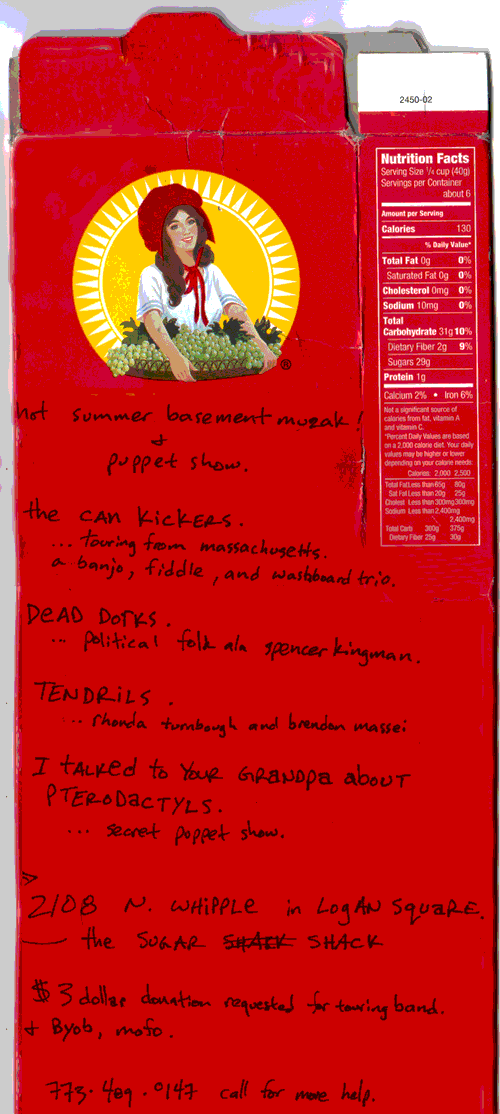 2450-02
Nutrition Facts
Serving Size 1/4 cup (40g)
Servings per Container
about 6
Amount per Serving
Calories 130
% Daily Value*
Total Fat 0g 0%
Saturated Fat 0g 0%
Cholesterol 0mg 0%
Sodium 10mg 0%
Total
Carbohydrate 31g 10%
Dietary Fiber 2g 9%
Sugars 29g
Protein 1g
Calcium 2% • Iron 6%
Not a significant source of
calories from fat, vitamin A
and vitamin C.
*Percent Daily Values are based
on a 2,000 calorie diet. Your daily
values may be higher or lower
depending on your calorie needs:
Calories: 2,000 2,500
Total Fat Less than 65g 80g
Sat Fat Less than 20g 25g
Cholest Less than 300mg 300mg
Sodium Less than 2,400mg
2,400mg
Total Carb 300g 375g
Dietary Fiber 25g 30g
®
hot summer basement muzak!
&
puppet show.
the CAN KicKERS.
... touring from massachusetts.
a banjo, fiddle, and washboard trio.
DEAD DORKS.
... political folk ala spencer kingman.
TENDRiLS.
... rhonda turnbough and brendon massei
I TALKed to YOUR GRANDpa aboUT
PTERODaCTYLS.
... secret puppet show.
2108 N. WHiPPLE in LogAN SquaRE.
the SUGAR SHACK SHACK
$3 dollar donation requested for touring band.
& Byob, mofo.
773.489.0147 call for more help.